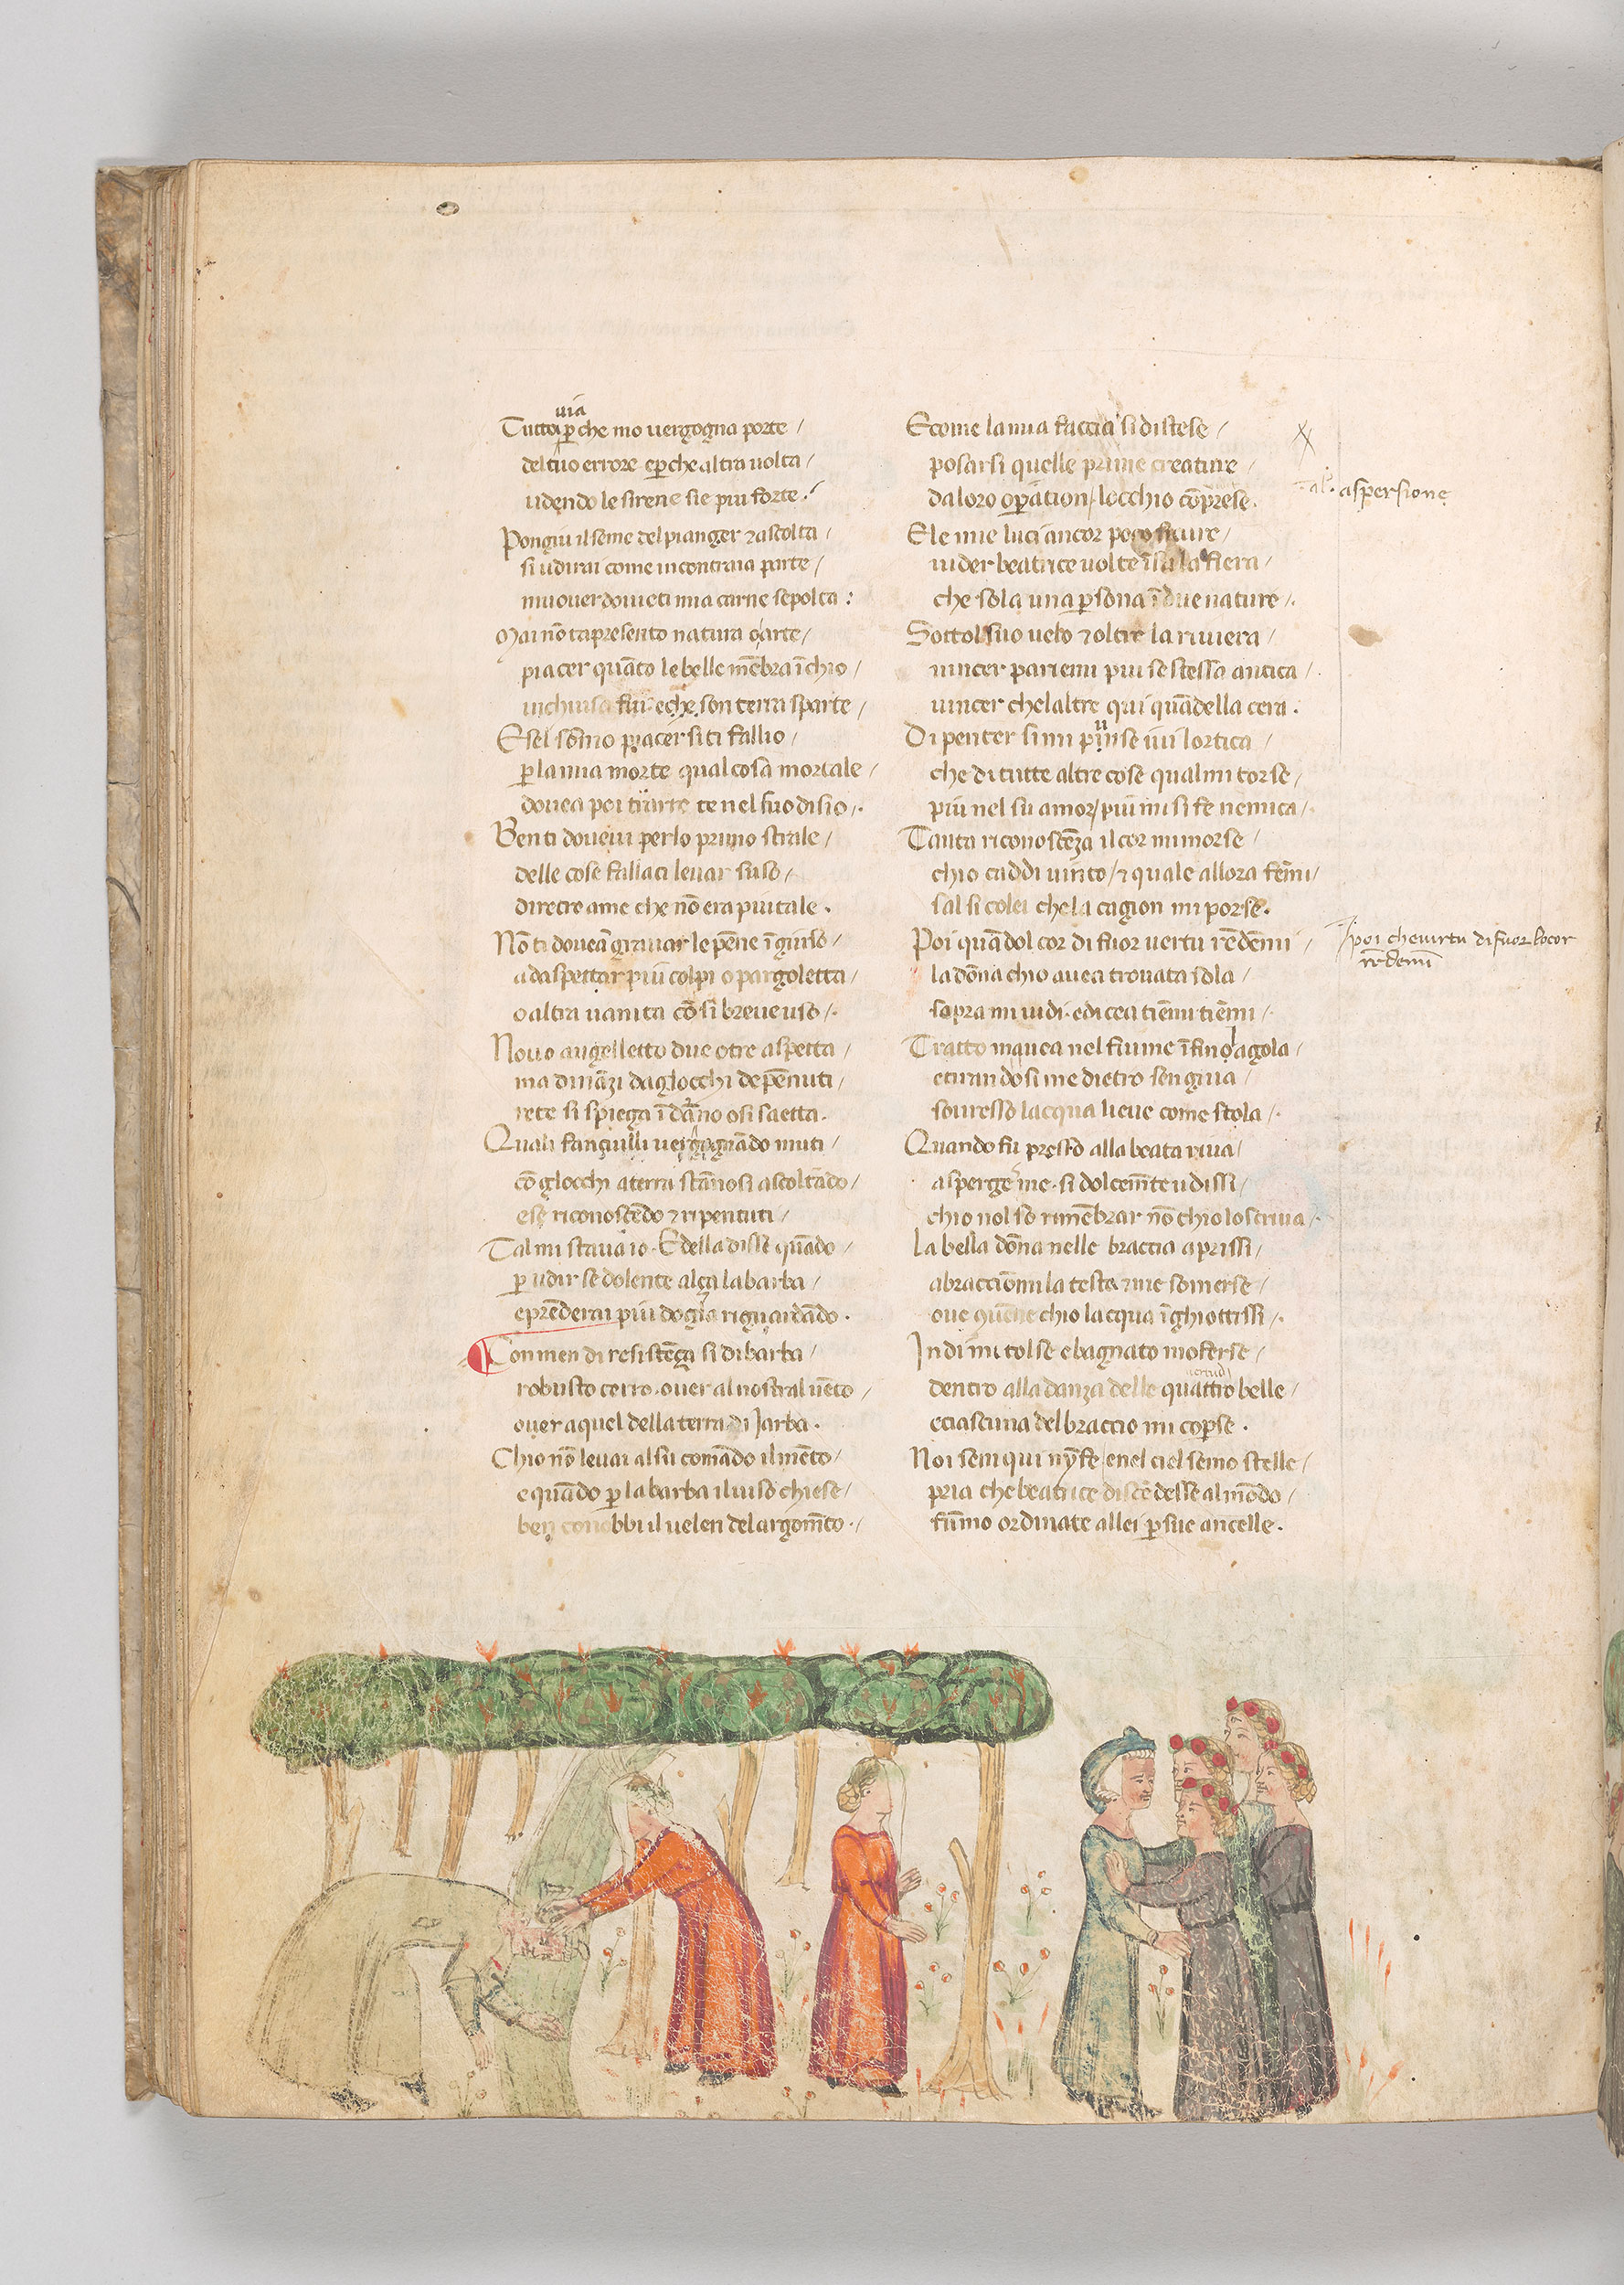 uia
Tutto ꝑ che mo uergogna porte /
del tuo errore eꝑche altra uolta /
udendo le sirene sie piu forte ·/
Pongiu il seme del pianger ⁊ ascolta /
si udirai come incontraia parte /
muouer doueti mia carne sepolta :
Mai nō tapresento natura o arte /
piacer quāto le belle mēbra ī chio /
inchiusa fui ⁊ che son terra sparte /
E sel sōmo piacer si ti fallio /
ꝑ la mia morte qual cosa mortale /
douea poi trarre te nel suo disio /·
Ben ti doueui per lo primo strale /
delle cose fallaci leuar suso /
diretro a me che nō era piu tale ·
Nō ti douea grauar le pēne ī giuso /
ad aspettar piu colpi o pargoletta /
o altra uanita cō si breue uso /·
Nouo augelletto due o tre aspetta /
ma dināzi dagl occhi de pēnuti /
rete si spiega ī dāno o si saetta ·
Quali fanciulli uergognādo muti /
cō glocchi a terra stānosi ascoltādo /
e se riconoscēdo ⁊ ripentuti /
Tal mi staua io · Edella disse quādo /
ꝑ udir se dolente alça la barba /
e prēderai piu doglia riguardādo ·
Con men di resistēça si dibarba /
robusto cerro · ouer al nostral uēto /
ouer a quel della terra di Jarba ·
Chio nō leuai al su comādo il mēto /
e quādo ꝑ la barba il uiso chiese /
ben conobbi il uelen del argomēto ·/
E come la mia faccia si distese /
posarsi quelle prime creature /
da loro oꝑation / locchio cōprese ·
al · aspersione
E le mie luci ancor poco sicure /
uider beatrice uolte ī su la fiera /
che sola una ꝑsona ī due nature /·
Sottol suo uelo ⁊ oltre la riuiera /
uincer pariemi piu se stessa antica /
uincer che laltre qui quādella cera ·
Di penter si mi punse iui lortica /
che di tutte altre cose qual mi torse /
piu nel su amor / piu mi si fe nemica /
Tanta riconoscēza il cor mi morse /
chio caddi uinto / ⁊ quale allora fēmi /
sal si colei che la cagion mi porse ·
Poi quādol cor di fuor uertu rēdēmi /
poi che uirtu di fuor locor
rēdemi
la dōna chio auea trouata sola /
sopra mi uidi · e dicea tiēmi tiēmi /
Tratto mauea nel fiume ī fino a gola /
e tirandosi me dietro sen giua /
souresso lacqua lieue come stola /·
Quando fu presso alla beata riua /
asperge me · si dolcemēte udissi /
chio nol so rimēbrar nō chio lo scriua /
La bella dōna nelle braccia aprissi /
abracciōmi la testa ⁊ me somerse /
oue cōuēne chio lacqua īghiottissi /·
Indi mi tolse e bagnato mofferse /
uertud
dentro alla danza delle quattro belle /
e ciascuna del braccio mi coꝑse ·
Noi sem qui nȳfe / e nel ciel semo stelle /
pria che beatrice discēdesse al mōdo /
fūmo ordinate a llei ꝑ sue ancelle ·